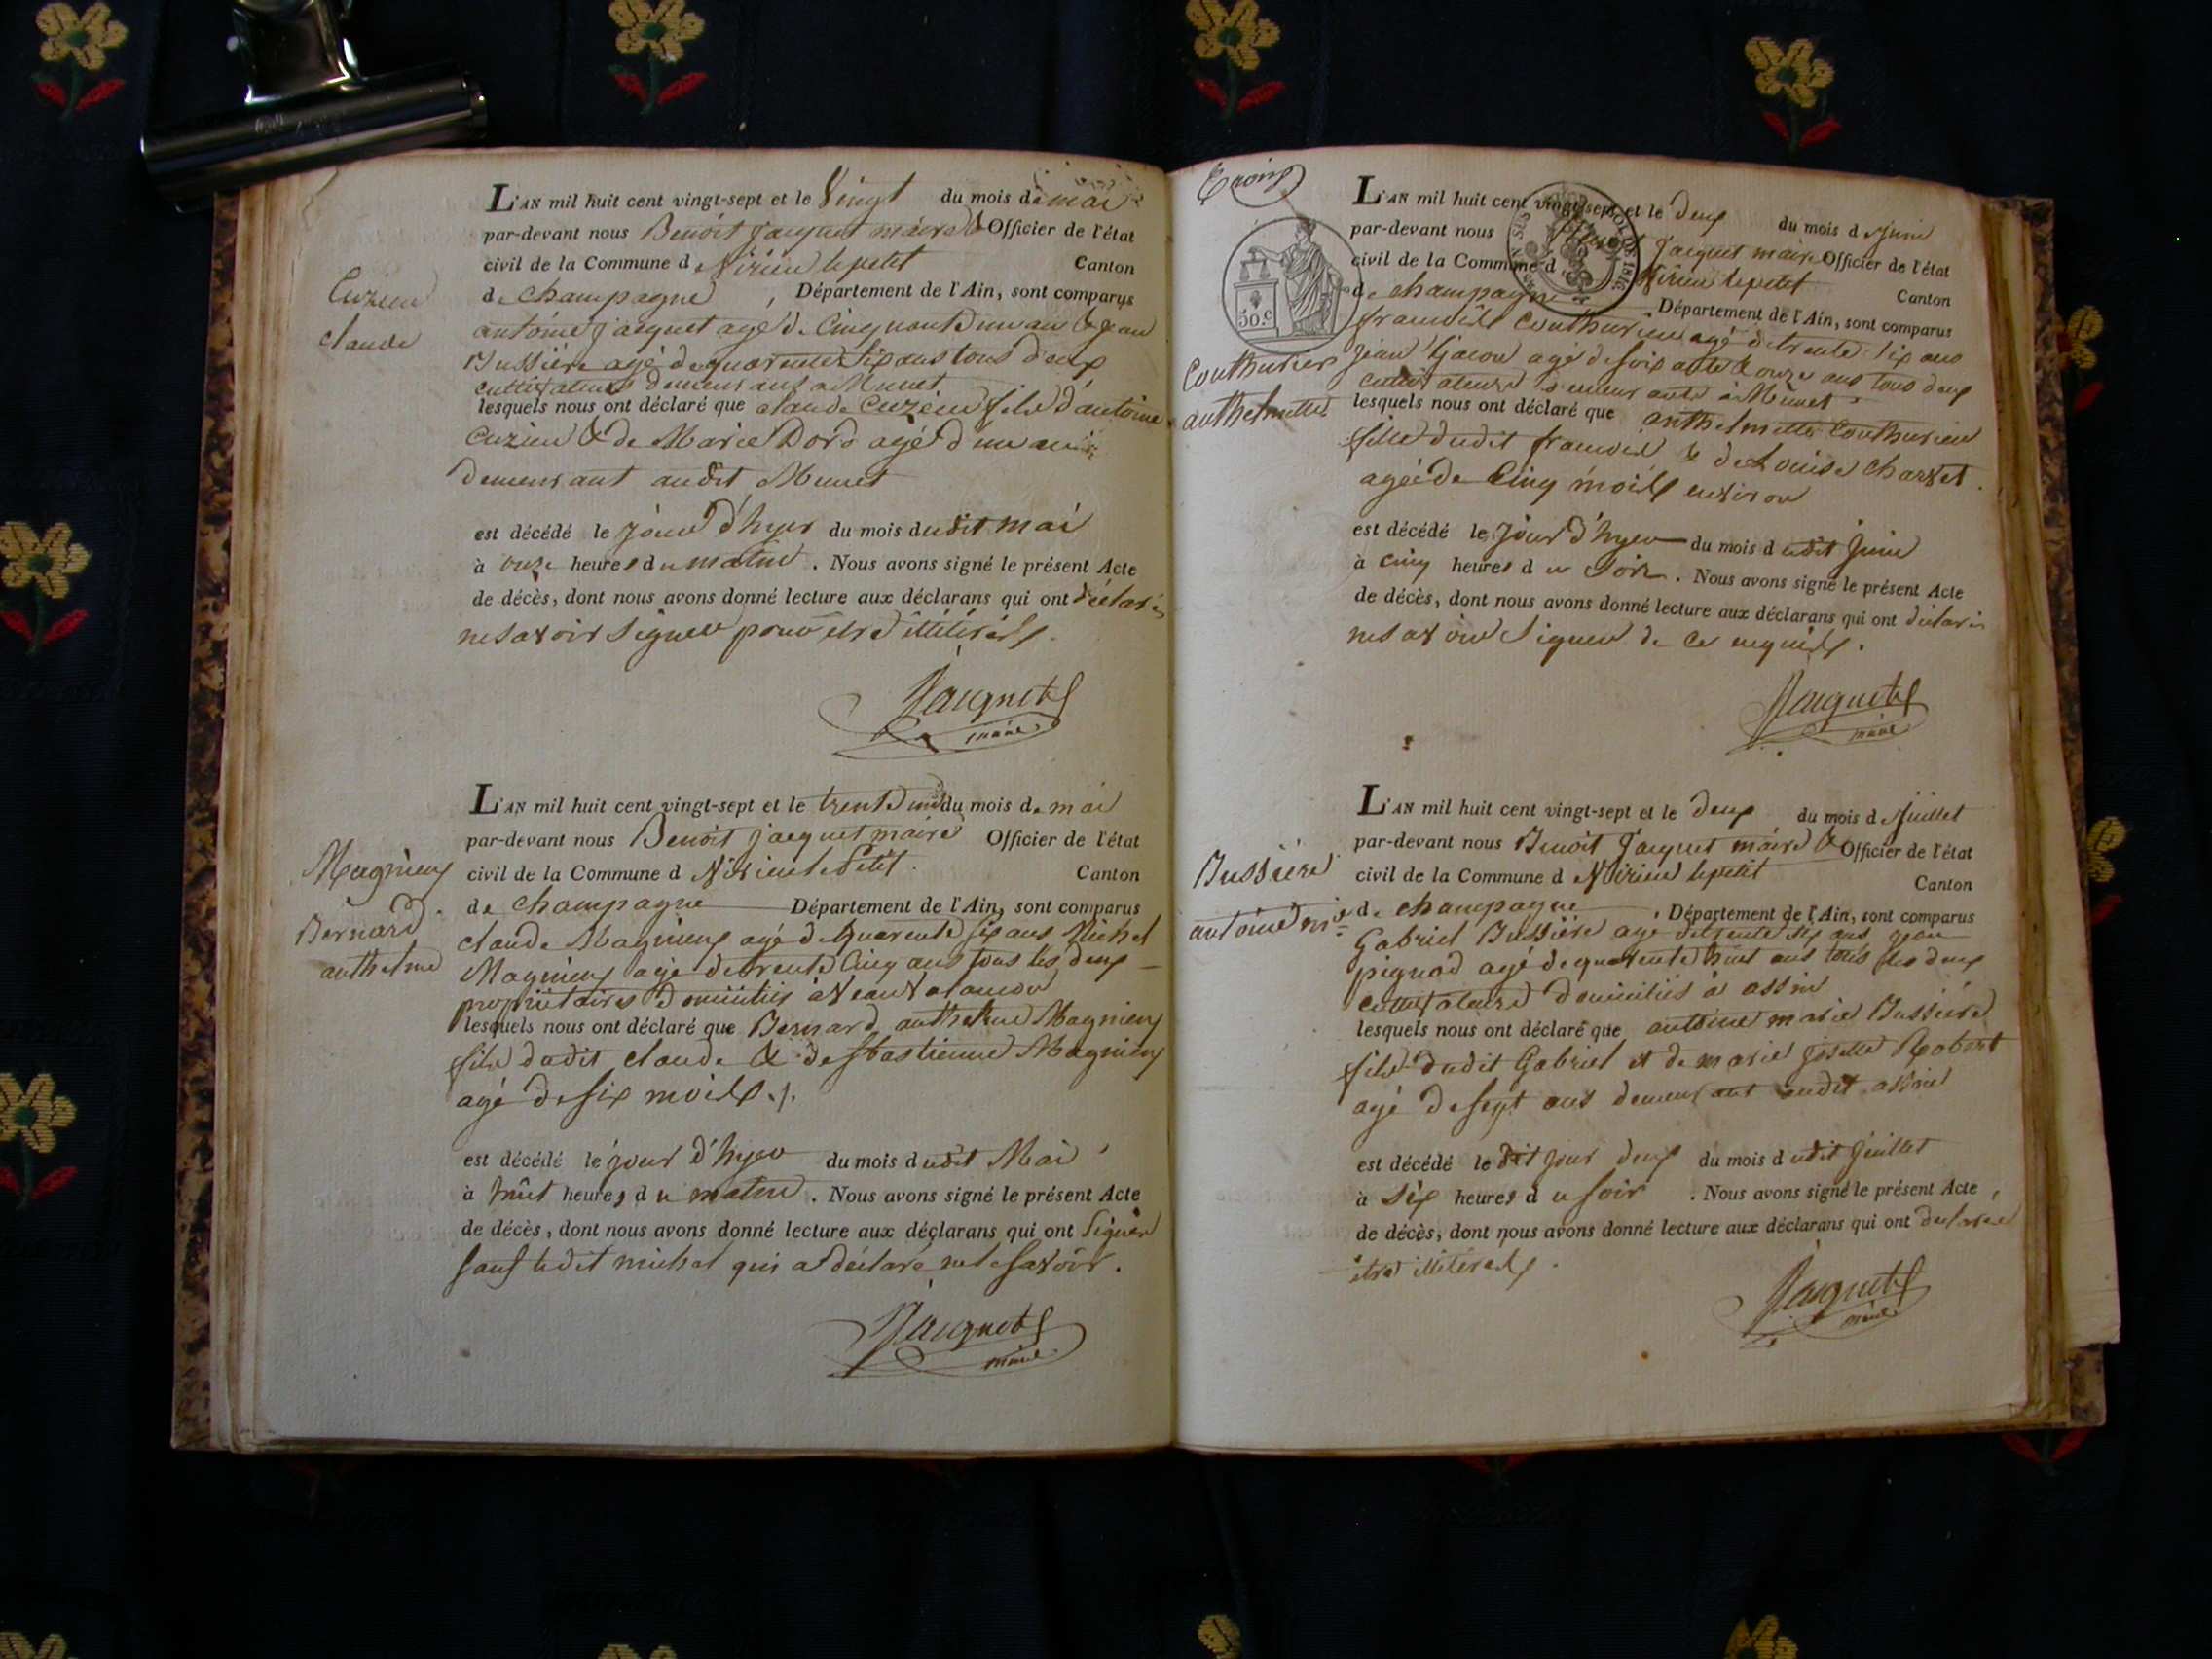 L'AN mil huit cent vingt-sept et le Vingt du mois de mai
par-devant nous Benoit jacquet maire & Officier de l'état
civil de la Commune d Virieu le petit Canton
de champagne , Département de l'Ain, sont comparus
Cuzieu
claude
antoine jacquet agé de Cinquante un an & jean
Bussière agé de quarente six ans tous deux
cultivateurs demeurant a Munet
lesquels nous ont déclaré que claude Cuzieu fils d'antoine
Cuzieu & de Marie Dord agé d'un an
demeurant audit Munet
est décédé le jour d'hyer du mois dudit mai
à onze heures du matin . Nous avons signé le présent Acte
de décès, dont nous avons donné lecture aux déclarans qui ont déclaré
ne savoir signer pour etre illitérés
Jacquet
maire
L'AN mil huit cent vingt-sept et le trente un du mois de mai
par-devant nous Benoit jacquet maire Officier de l'état
civil de la Commune d Virieu le Petit Canton
de champagne Département de l'Ain, sont comparus
Magnieux
Bernard
anthelme
claude Magnieux agé de quarente six ans Michel
Magnieux agé de trente cinq ans tous les deux
propriétaires domiciliés à
lesquels nous ont déclaré que Bernard anthelme Magnieux
fils dudit claude & de sbastienne Magnieux
agé de six mois
est décédé le jour d'hyer du mois dudit Mai
à huit heures du matin . Nous avons signé le présent Acte
de décès, dont nous avons donné lecture aux déclarans qui ont signer
sauf ledit michel qui a déclaré ne le savoir.
Jacquet
maire
L'AN mil huit cent vingt-sept et le deux du mois d Juin
par-devant nous Jacquet maire Officier de l'état
civil de la Commune d Virieu le petit Canton
de champagne Département de l'Ain, sont comparus
50.c
Couthurier
anthelmette
francois Couthurier agé de trente six ans
jean agé de soixante & onze ans tous deux
cultivateurs demeurants à Munet
lesquels nous ont déclaré que anthelmette Couthurier
fille dudit francois & de Louise Charvet
agée de Cinq mois environ
est décédé le jour d'hyer du mois dudit juin
à cinq heures du soir . Nous avons signé le présent Acte
de décès, dont nous avons donné lecture aux déclarans qui ont déclaré
ne savoir signer de ce requis.
Jacquet
maire
L'AN mil huit cent vingt-sept et le deux du mois d Juillet
par-devant nous Benoit Jacquet maire & Officier de l'état
civil de la Commune d Virieu le petit Canton
de champagne , Département de l'Ain, sont comparus
Bussière
antoine mie
Gabriel Bussière agé de trente six ans jean
pignod agé de quarente huit ans tous les deux
cultivateurs domiciliés à assin
lesquels nous ont déclaré que antoine marie Bussière
fils dudit Gabriel et de marie josette Robert
agé de sept ans demeurant audit assin
est décédé le dit jour deux du mois dudit juillet
à six heures du soir . Nous avons signé le présent Acte
de décès, dont nous avons donné lecture aux déclarans qui ont declaré
etre illitérés.
Jacquet
maire